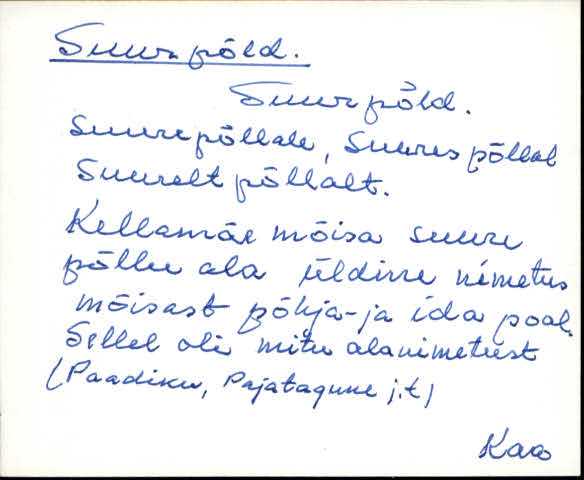 Suur põld.
Suur põld.
Suurepõllale, Suures põllal
Suurelt põllalt.
Kellamäe mõisa suure
põllu ala üldine nimetus
mõisast põhja-ja ida pool.
Sellel oli mitu alanimetust
(Paadiku, Pajatagune j.t)
Kaa